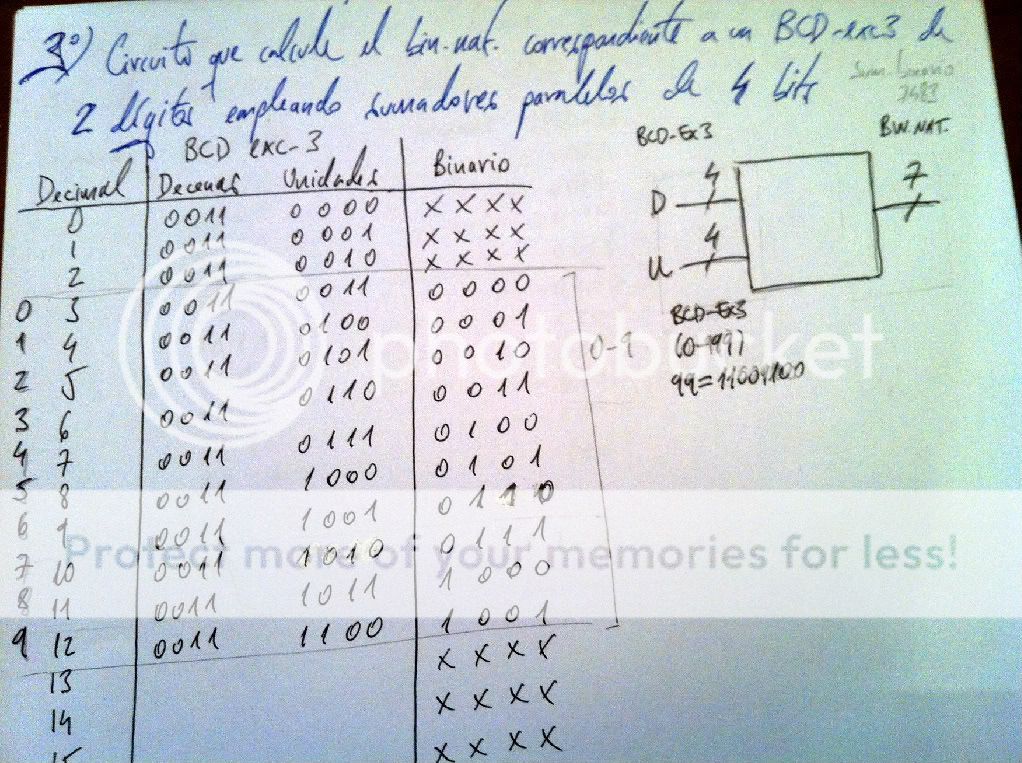 3º) Circuito que calcule el bin.nat. correspondiente a un BCD-exc3 de
2 dígitos empleando sumadores paralelos de 4 bits
Sum. binario
7483
BCD exc-3
Decimal Decenas Unidades Binario
0 0011 0000 XXXX
1 0011 0001 XXXX
2 0011 0010 XXXX
0 3 0011 0011 0000
1 4 0011 0100 0001
2 5 0011 0101 0010
3 6 0011 0110 0011
4 7 0011 0111 0100
5 8 0011 1000 0101
6 9 0011 1001 0110
7 10 0011 1010 0111
8 11 0011 1011 1000
9 12 0011 1100 1001
13 XXXX
14 XXXX
15 XXXX
0-9
BCD-Ex3 BIN.NAT.
D 4 7
U 4
BCD-Ex3
(0-99)
99=11001100
photobucket
Protect more of your memories for less!